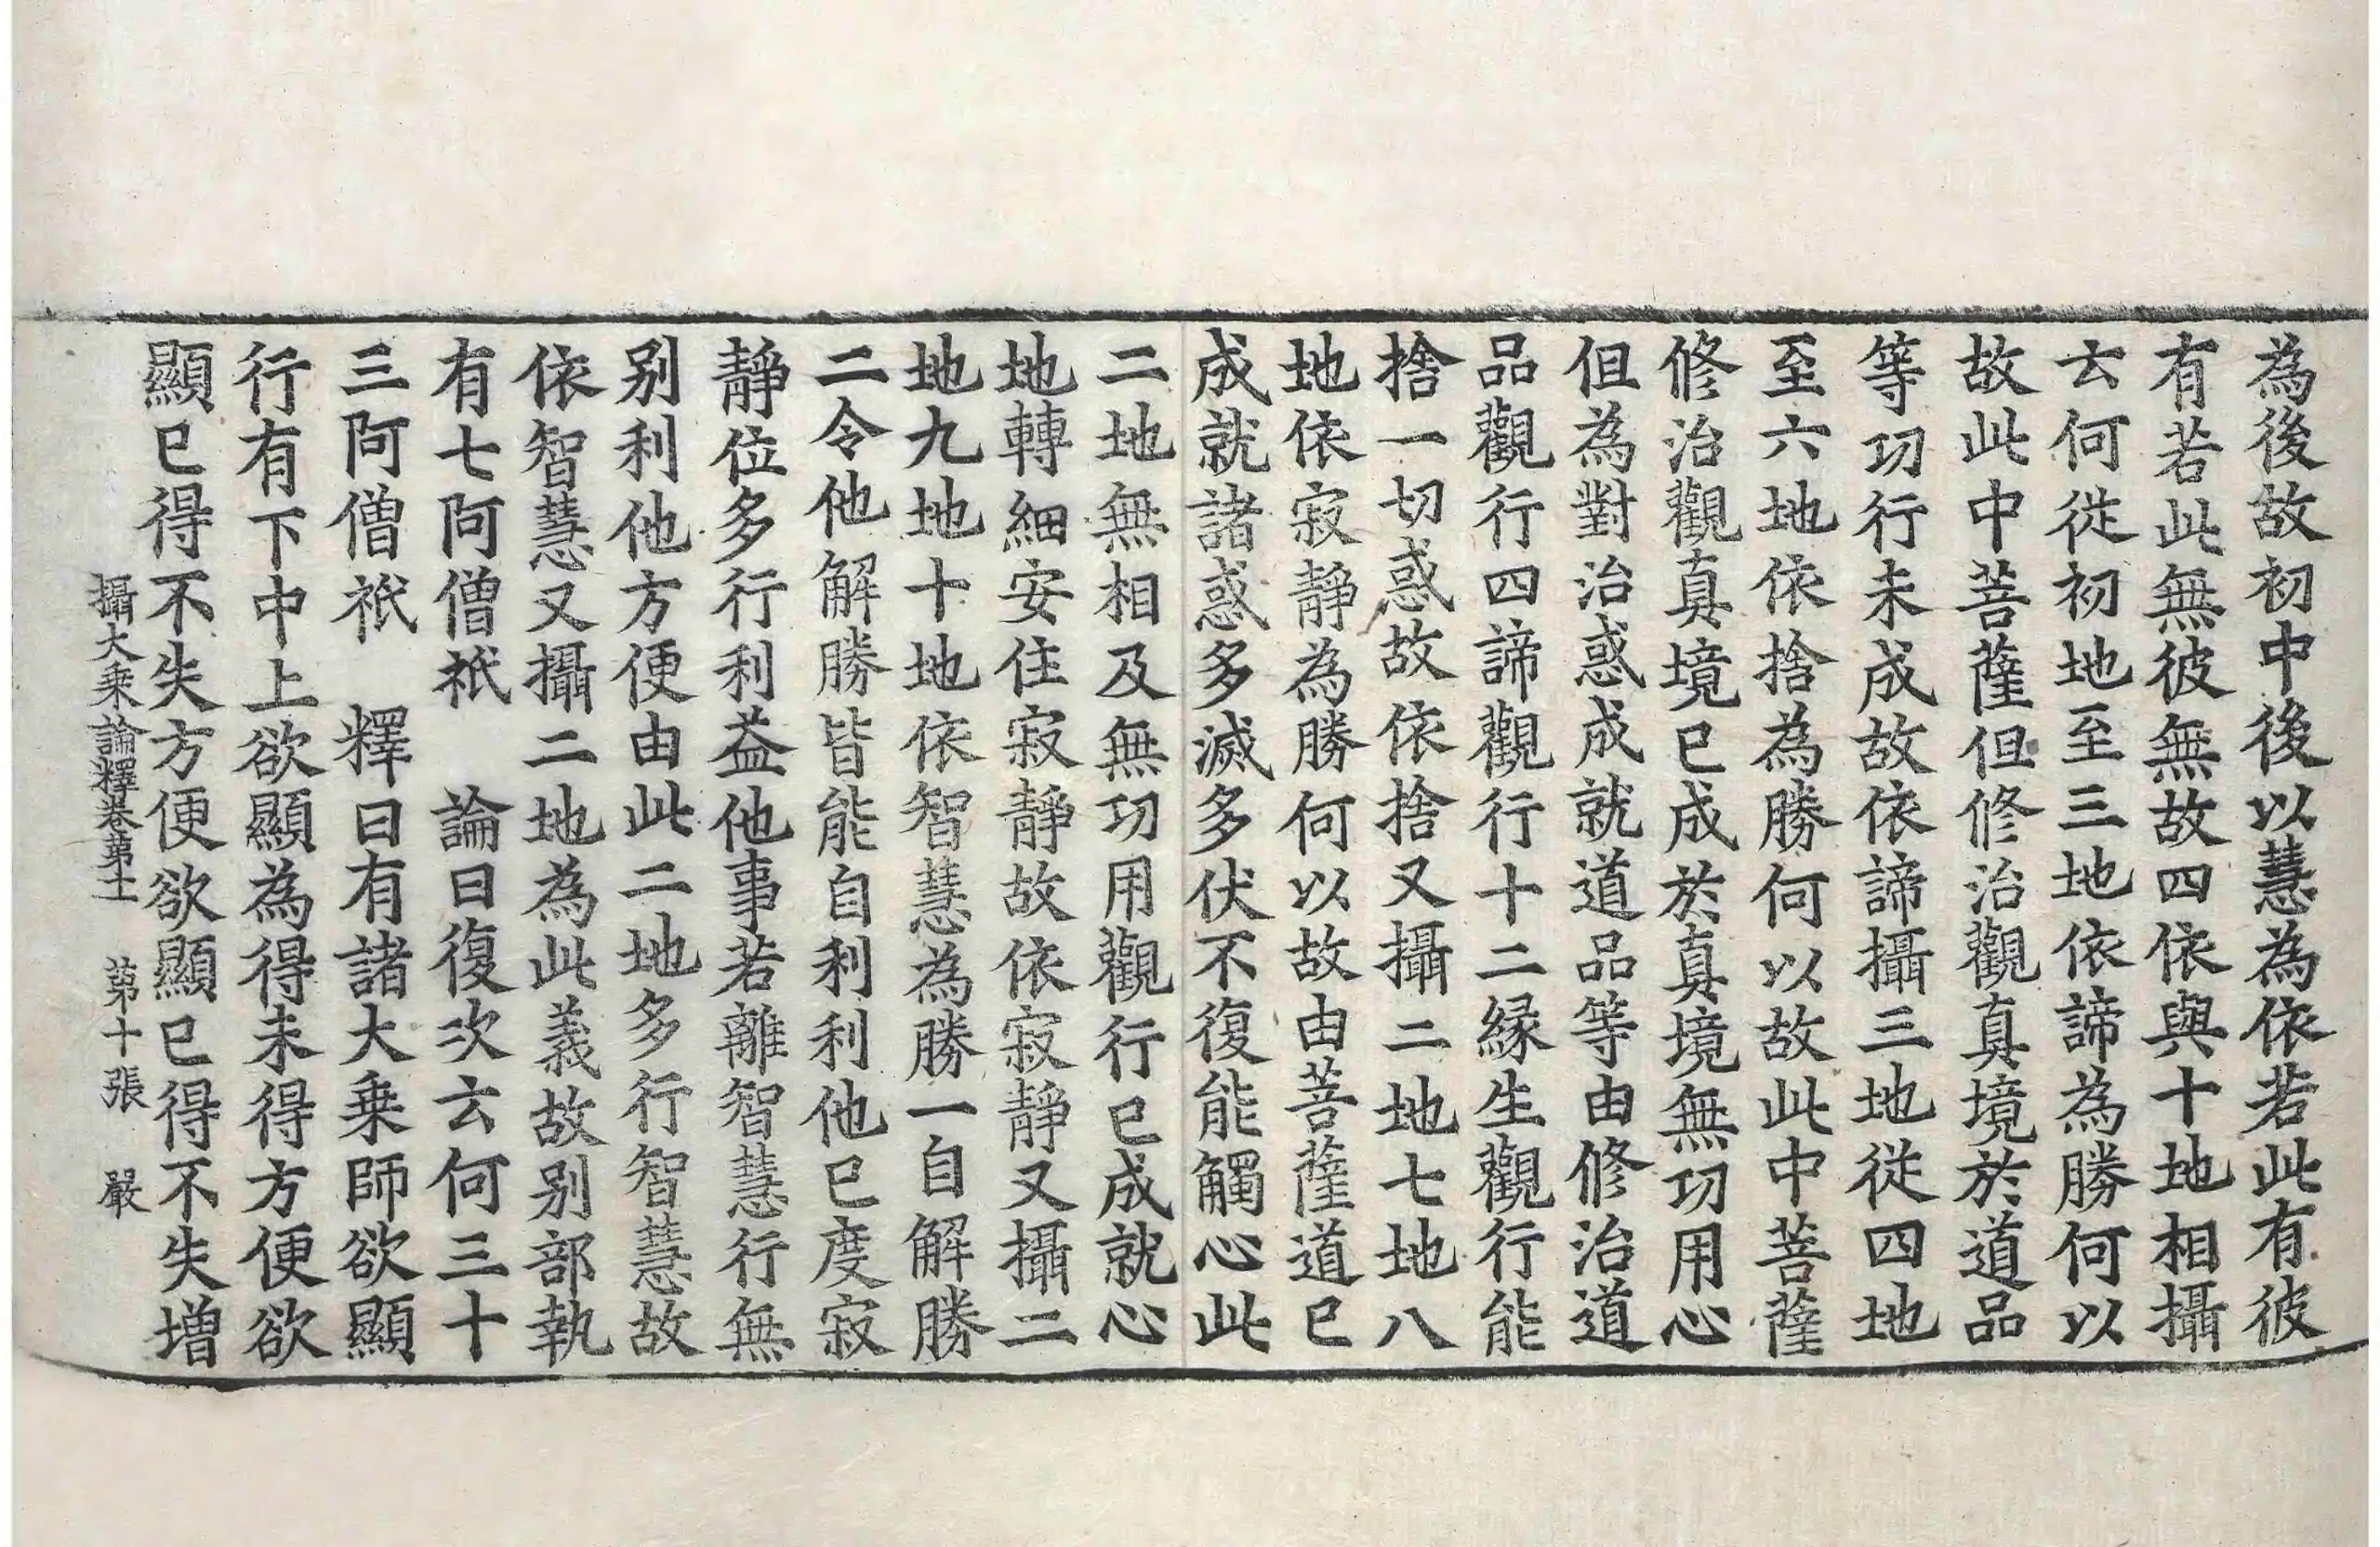 為後故初中後以慧為依若此有彼
有若此無彼無故四依與十地相攝
云何從初地至三地依諦為勝何以
故此中菩薩但修治觀真境於道品
等功行未成故依諦攝三地從四地
至六地依捨為勝何以故此中菩薩
修治觀真境已成於真境無功用心
但為對治惑成就道品等由修治道
品觀行四諦觀行十二緣生觀行能
捨一切惑故依捨又攝二地七地八
地依寂靜為勝何以故由菩薩道已
成就諸惑多滅多伏不復能觸心此
二地無相及無功用觀行已成就心
地轉細安住寂靜故依寂靜又攝二
地九地十地依智慧為勝一自解勝
二令他解勝皆能自利利他已度寂
靜位多行利益他事若離智慧行無
別利他方便由此二地多行智慧故
依智慧又攝二地為此義故別部執
有七阿僧祇　論曰復次云何三十
三阿僧祇　釋曰有諸大乗師欲顯
行有下中上欲顯為得未得方便欲
顯已得不失方便欲顯已得不失增
攝大乗論釋卷第十一　第十張　嚴